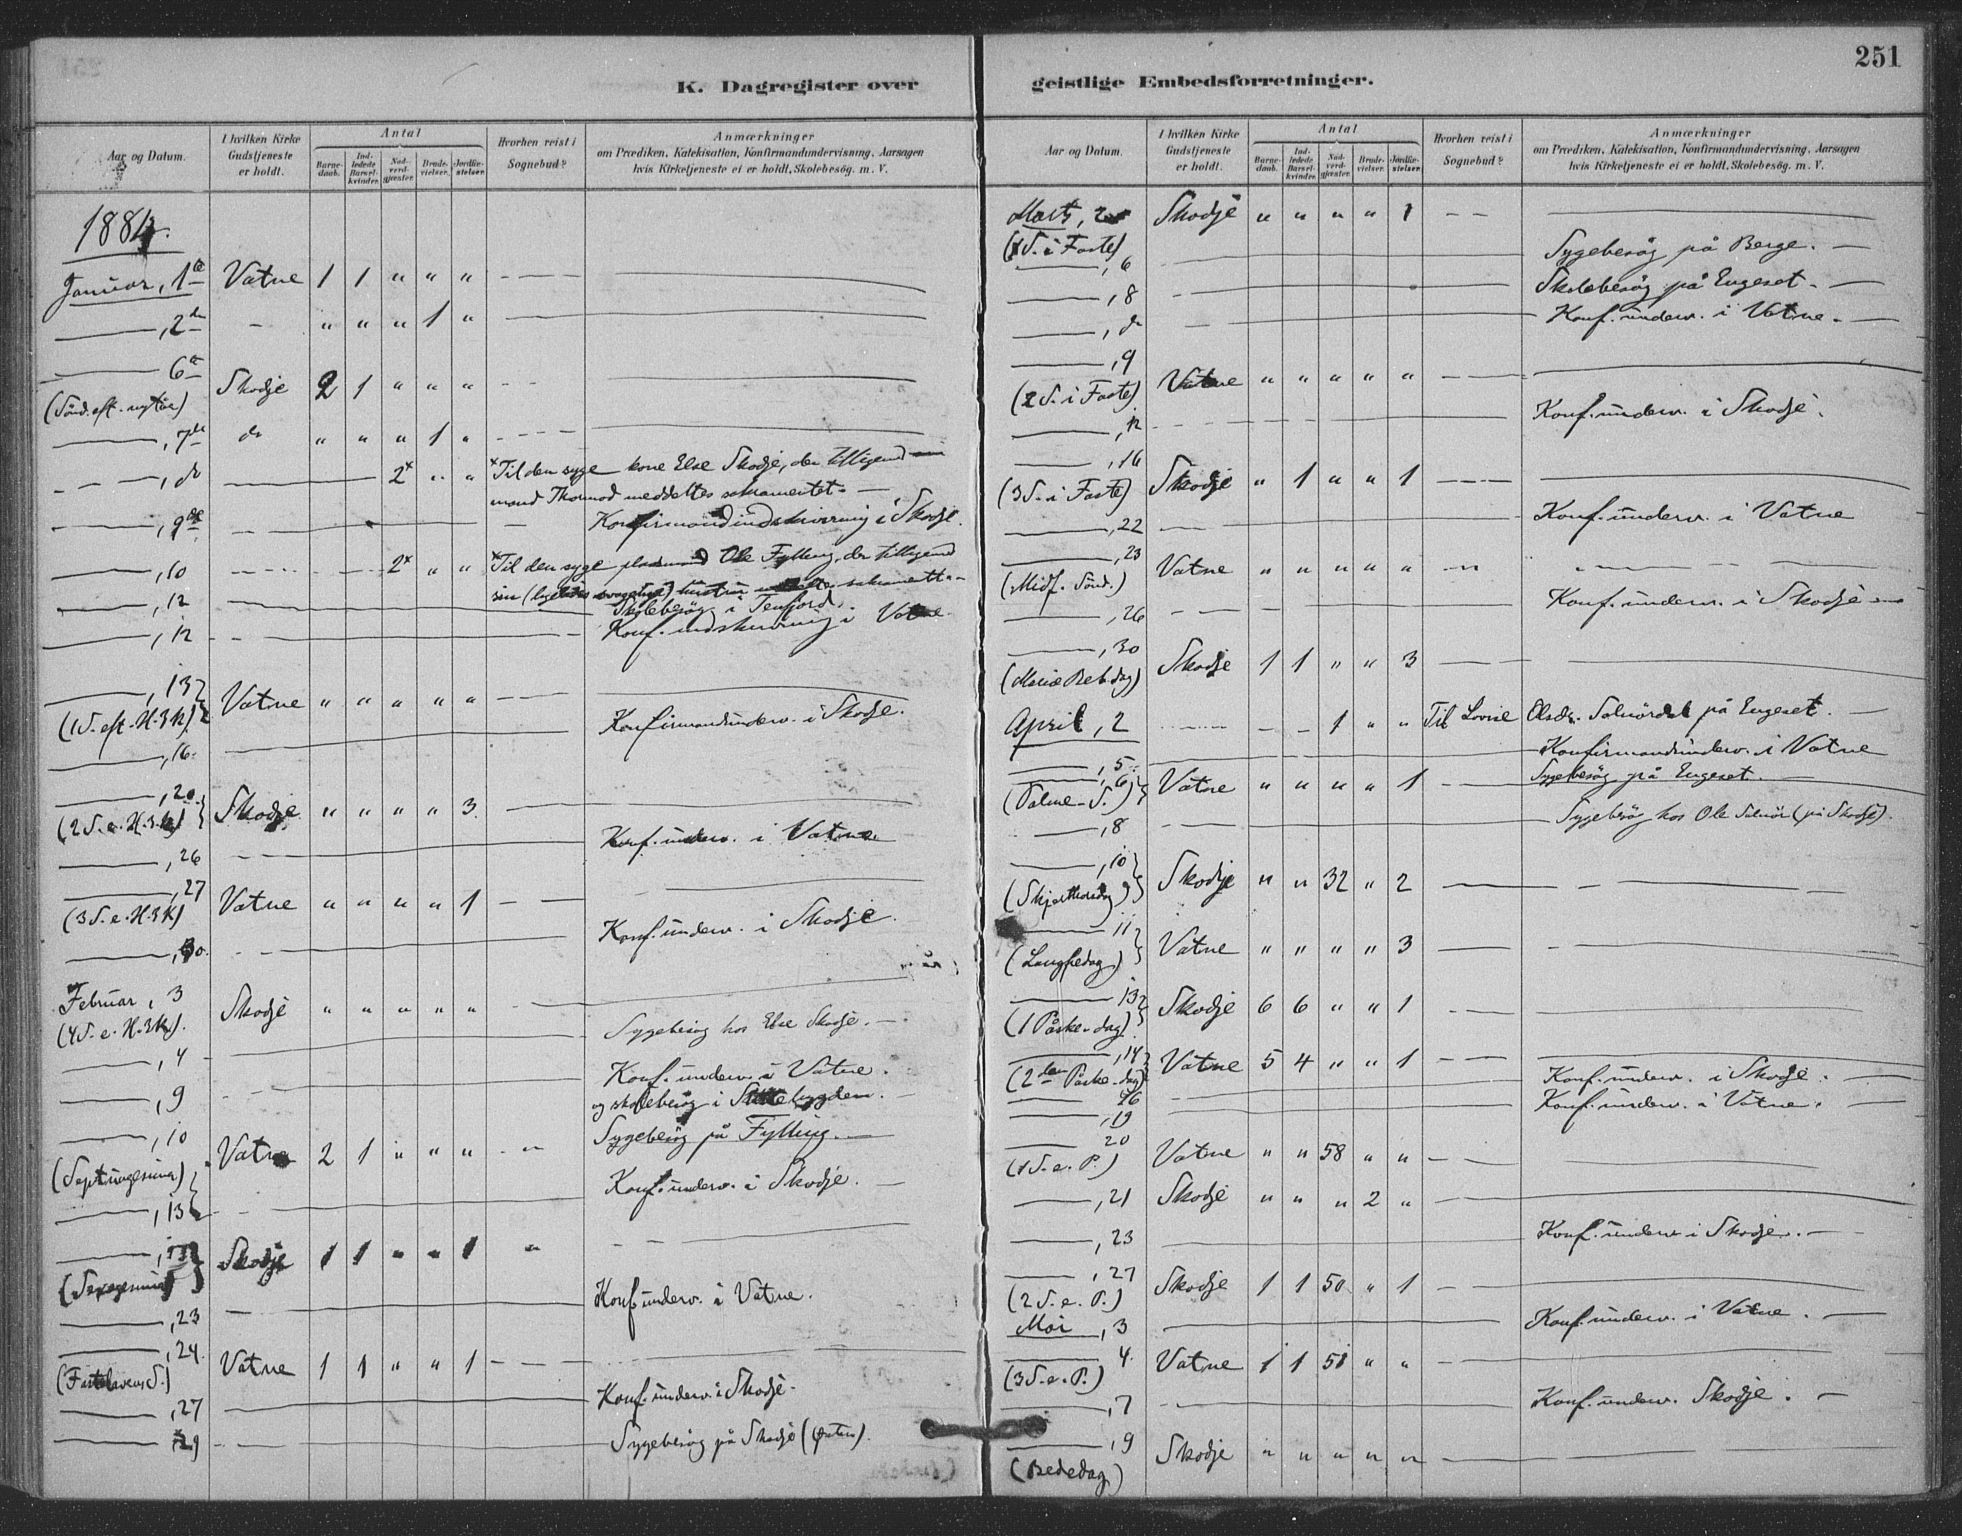 251
K. Dagregister over
geistlige Embedsforretninger.
Aar og Datum.
I hvilken Kirke Gudstjeneste er holdt.
Antal
Barne-daab.
Ind-ledede Barsel-kvinder.
Nad-verd-gjæster.
Brude-vielser.
Jordfæ-stelser.
Hvorhen reist i Sognebud?
Anmærkninger
om Prædiken, Katekisation, Konfirmandundervisning, Aarsagen
hvis Kirketjeneste ei er holdt, Skolebesög. m. V.
1884.
Januar, 1ste Vatne 1 1 " " "
——, 2den - " " " 1 "
—— 6te
(Sönd. eft. nytår) Skodje 2 1 " " "
——, 7de do " " " 1 "
——, do 2x " " xTil den syge kone Else Skodje, der tilligemed
mand Thormod meddeltes sakramentet.
——, 9de Konfirmandindskrivning i Skodje.
——, 10 2x " " xTil den syge Ole Fylling, der tilligemed
sin
——, 12 Skolebesög i Tenfjord.
——, 12 Konf. indskrivning i Vatne
——, 13
(1 S. eft. H. 3 K.) Vatne " " " " "
——, 16. Konfirmandunderv. i Skodje.
——, 20.
(2 S. e. H. 3 K) Skodje " " " " 3.
——, 26 Konf. underv. i Vatne
——, 27
(3 S. e. H. 3 K) Vatne " " " " 1
——, 30. Konf. underv. i Skodje.
Februar, 3
(4 S. e. H. 3 K). Skodje " " " " "
——, 4 Sygebesög hos Else Skodje.
——, 9 Konf. underv. i Vatne.
og skolebesög i
——, 10 Sygebesög på Fylling.
(Septuagesima) Vatne 2 1 " " "
——, 13 Konf. underv. i Skodje.
——, 17
(Sexagesima) Skodje 1 1 " " 1 "
——, 23 Konf. underv. i Vatne.
——, 24.
(Fastelavens S.) Vatne 1 1 " " 1
——, 27 Konf. underv. i Skodje.
—— 29 Sygebesög på Skodje
Aar og Datum.
I hvilken Kirke Gudstjeneste er holdt.
Antal
Barne-daab.
Ind-ledede Barsel-kvinder.
Nad-verd-gjæster.
Brude-vielser.
Jordfæ-stelser.
Hvorhen reist i Sognebud?
Anmærkninger
om Prædiken, Katekisation, Konfirmandundervisning, Aarsagen
hvis Kirketjeneste ei er holdt, Skolebesög. m. V.
Marts, 2 Skodje " " " " 1
(1 S. i Faste)
——, 6 Sygebesög på Berge.
——, 8 Skolebesög på Engeset.
——, do Konf. underv. i Vatne.
——, 9
(2 S. i Faste). Vatne " " " " "
——, 12 Konf. underv. i Skodje.
——, 16
(3 S. i Faste) Skodje " 1 " " 1
——, 22 Konf. underv. i Vatne
——, 23
(Midf. Sönd.) Vatne " " " " "
——, 26 Konf. underv. i Skodje
——, 30
(Mariæ Beb. dag) Skodje 1 1 " " 3
April, 2 1 " " Til Lovise Olsdr. Solnördal på Engeset.
——, 5. Konfirmandunderv. i Vatne
——, 6 Sygebesög på Engeset.
(Palme-S.) Vatne " " " " 1
——, 8 Sygebesög hos Ole Solnör (på Skodje).
——, 10
(Skjærthorsdag) Skodje " " 32 " 2
—— 11
(Langfredag.) Vatne " " " " 3
—— 13
(1 Påske-dag). Skodje 6 6 " " 1
——, 14
(2den Påske-dag) Vatne 5 4 " " 1
—— 16 Konf. underv. i Skodje.
——, 19 Konf. underv. i Vatne.
—— 20
(1 S. e. P.) Vatne " " 58 " "
——, 21 Skodje " " " 2 "
——, 23 Konf. underv. i Skodje.
——, 27
(2 S. e. P.) Skodje 1 1 50. " 1
Mai, 3 Konf. underv. i Vatne.
—— 4.
(3 S. e. P.) Vatne 1 1 " "
——, 7 Konf. underv. Skodje.
——, 9
(Bededag) Skodje " " " " "